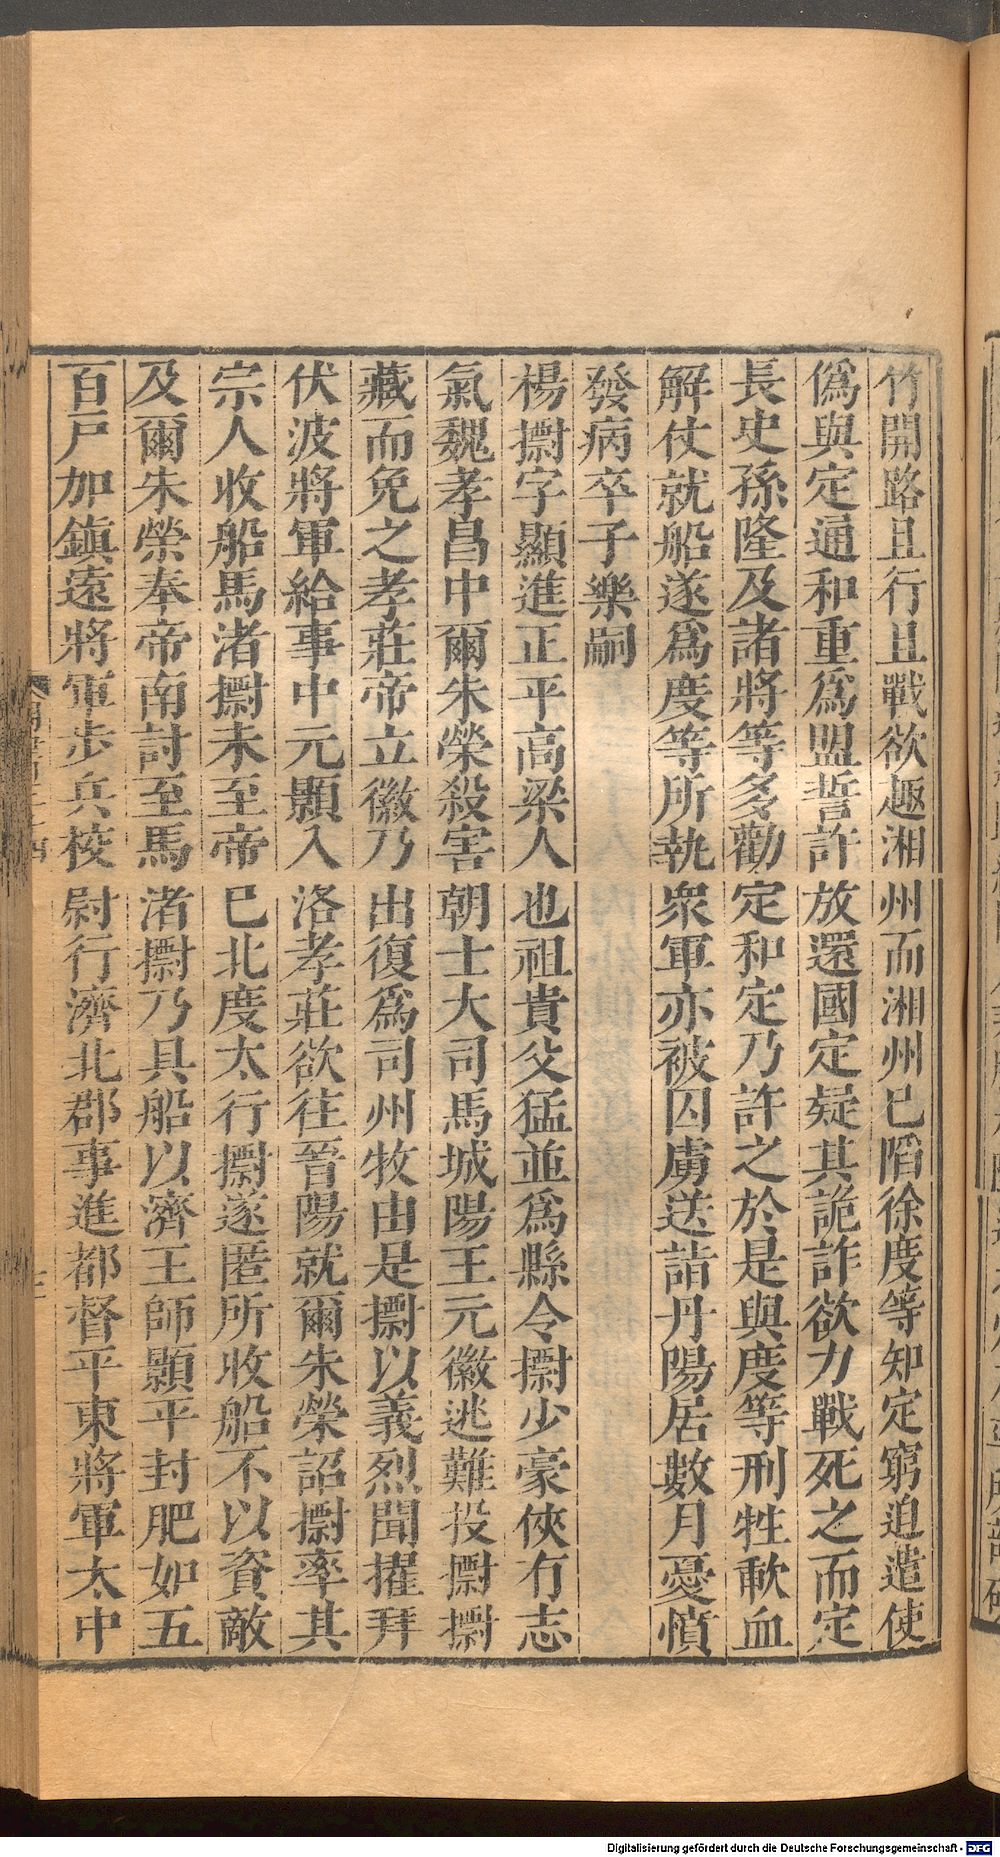 竹開路且行且戰欲趣湘州而湘州已陷徐度等知定窮迫遣使
僞與定通和重爲盟誓許放還國定疑其詭詐欲力戰死之而定
長史孫隆及諸將等多勸定和定乃許之於是與度等刑牲歃血
解仗就船遂爲度等所執衆軍亦被囚虜送詣丹陽居數月憂憤
發病卒子樂嗣
楊㩽字顯進正平高梁人也祖貴父猛並爲縣令㩽少豪俠有志
氣魏孝昌中爾朱榮殺害朝士大司馬城陽王元徽逃難投㩽㩽
藏而免之孝莊帝立徽乃出復爲司州牧由是㩽以義烈聞擢拜
伏波將軍給事中元顥入洛孝莊欲往晉陽就爾朱榮詔㩽率其
宗人收船馬渚㩽未至帝已北度太行㩽遂匿所收船不以資敵
及爾朱榮奉帝南討至馬渚㩽乃具船以濟王師顥平封肥如五
百戶加鎮遠將軍步兵校尉行濟北郡事進都督平東將軍太中
Digitalisierung gefördert durch die Deutsche Forschungsgemeinschaft - DFG